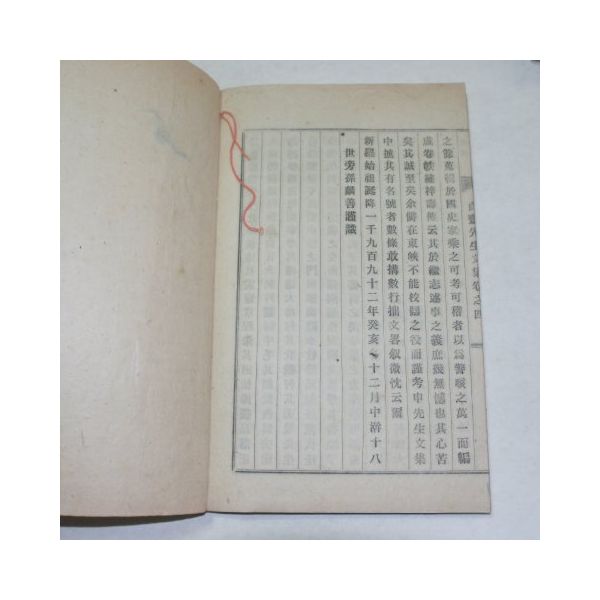 之餘蒐輯於國史家乘之可考可稽者以爲警咳之萬一而編
虛卷帙繡梓壽傳云其於繼志述事之義庶幾無憾也其心苦
矣其誠至矣余僻在東峽不能校讎之役而謹考申先生文集
中摭其有名號者數條敢搆數行拙文畧叙微忱云爾
新羅始祖誕降一千九百九十二年癸亥十二月中澣十八
世旁孫麟善謹識
先生文集卷之四